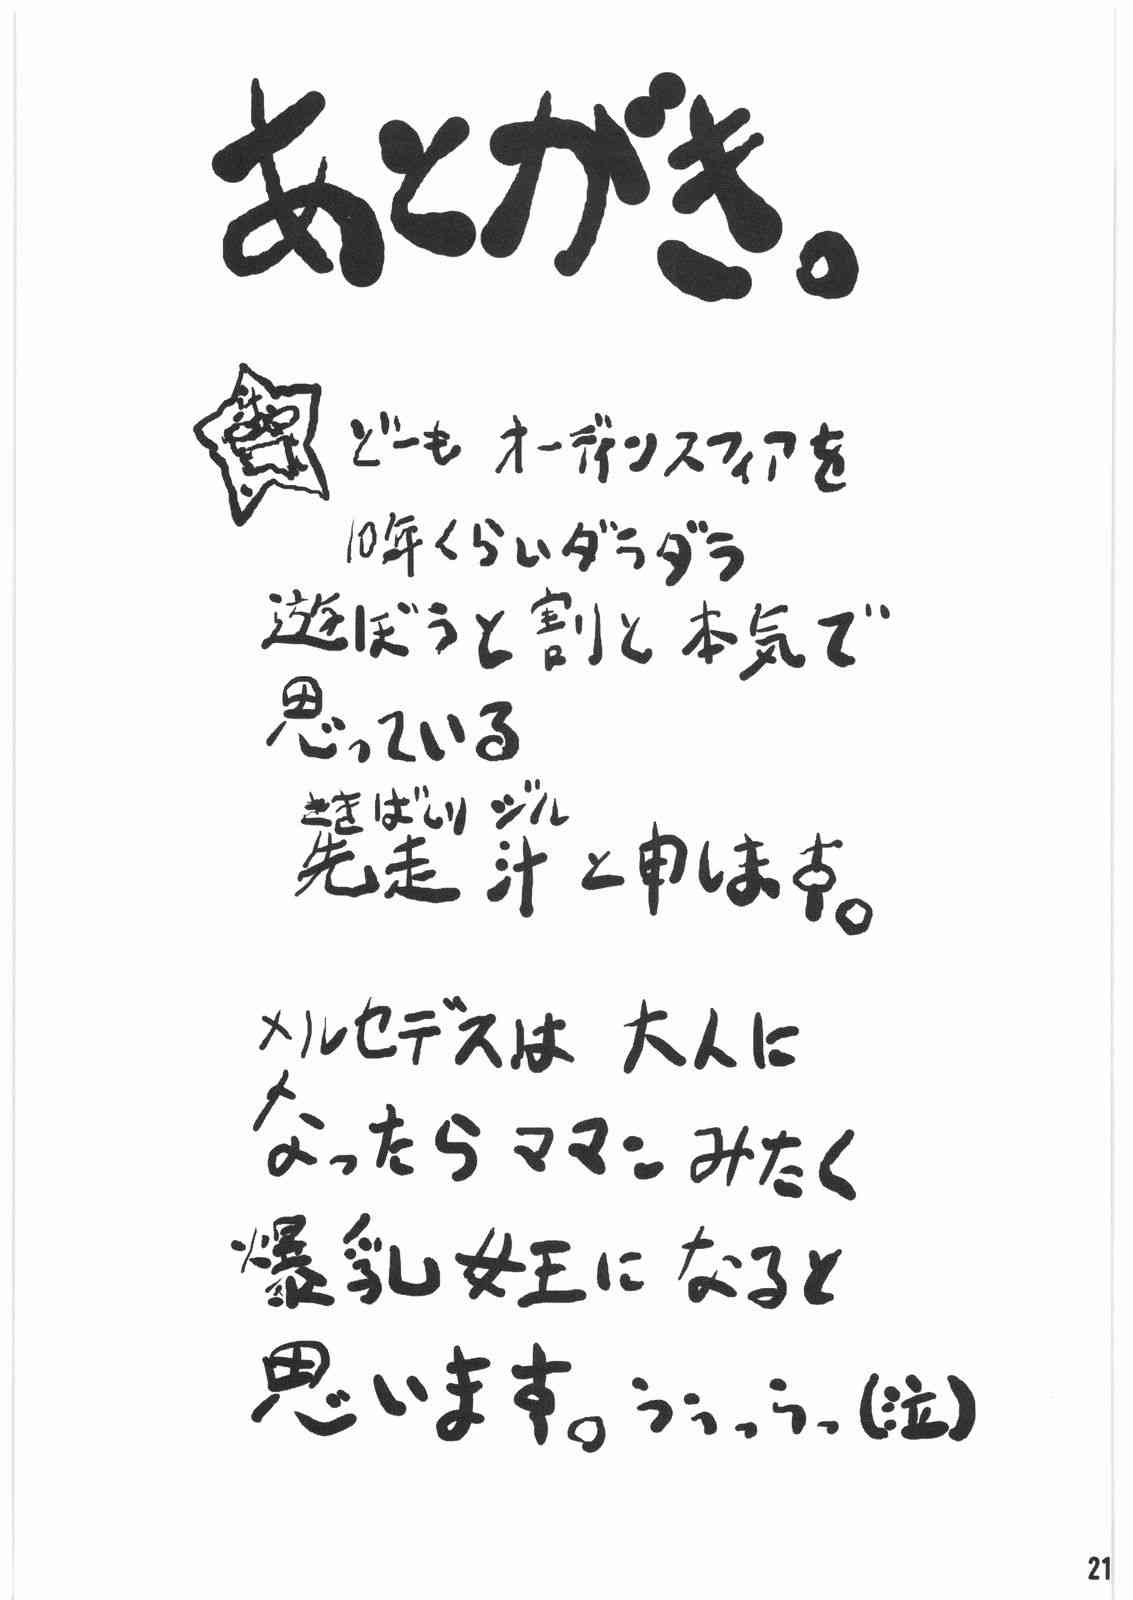 あとがき。
どーも オーディンスフィアを
10年くらいダラダラ
遊ぼうと割と本気で
思っている
さきばしり ジル
先走 汁 と申します。
メルセデスは 大人に
なったら ママン みたく
爆乳 女王に なると
思います。 うぅっうっ(泣)
21